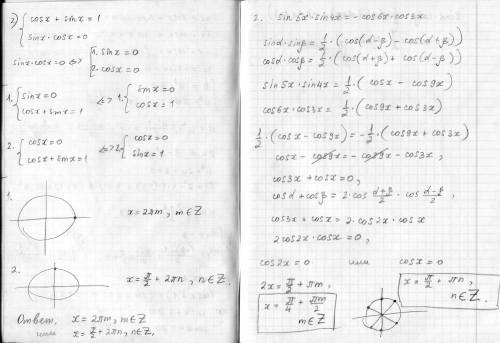 2) { cosx + sinx = 1
sinx · cosx = 0
sinx · cosx = 0 <=> [ 1. sinx = 0
2. cosx = 0
1. { sinx = 0
cosx + sinx = 1
<=> 1. { sinx = 0
cosx = 1
2. { cosx = 0
cosx + sinx = 1
<=> 2. { cosx = 0
sinx = 1
1.
x = 2πm, m∈Z
2.
x = π/2 + 2πn, n∈Z.
Ответ. x = 2πm, m∈Z
x = π/2 + 2πn, n∈Z.
2. sin5x · sin4x = -cos6x · cos3x
sinα · sinβ = 1/2 · (cos(α-β) - cos(α+β))
cosα · cosβ = 1/2 · (cos(α+β) + cos(α-β))
sin5x · sin4x = 1/2 · (cosx - cos9x)
cos6x · cos3x = 1/2 · (cos9x + cos3x)
1/2 · (cosx - cos9x) = -1/2 · (cos9x + cos3x)
cosx - cos9x = -cos9x - cos3x,
cos3x + cosx = 0,
cosα + cosβ = 2 · cos (α+β)/2 · cos (α-β)/2,
cos3x + cosx = 2 · cos2x · cosx
2cos2x · cosx = 0,
cos2x = 0 или cosx = 0
2x = π/2 + πm,
x = π/4 + πm/2
m∈Z
x = π/2 + πn,
n∈Z.